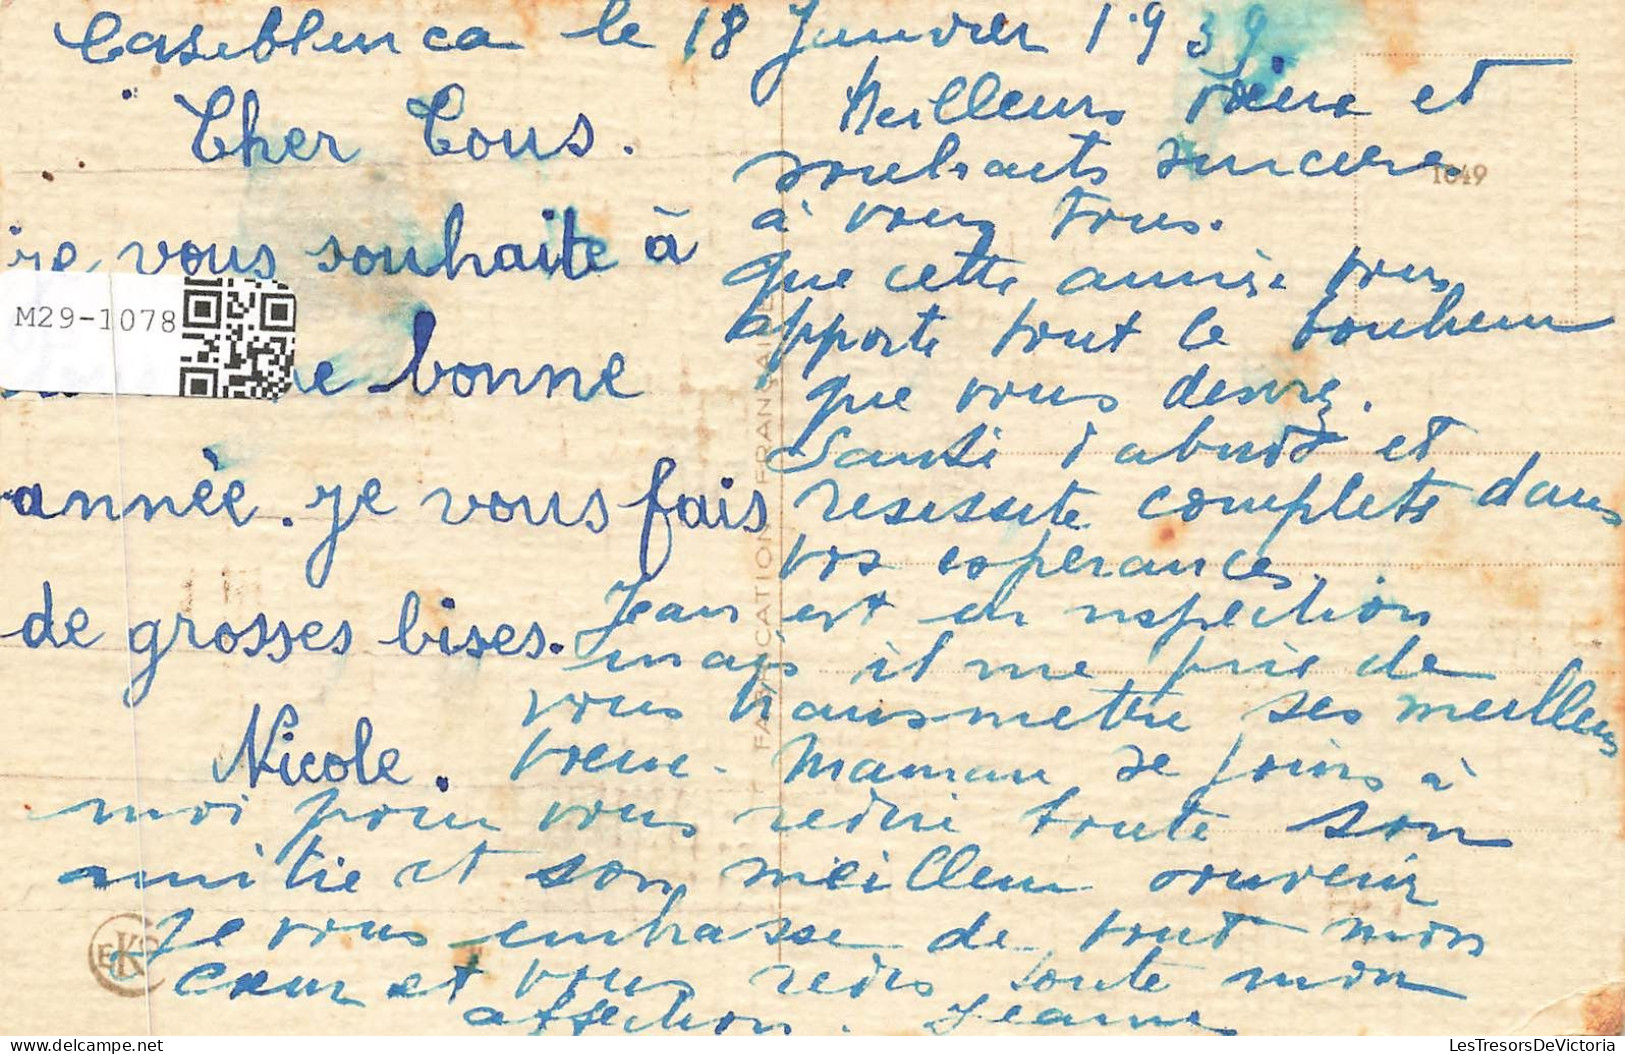 Casablenca le 18 Janvier 1.939.
Cher Tous.
je vous souhaite à
M29-1078
bonne
année. je vous fais
de grosses bises.
Nicole.
Meilleurs vœux et
souhaits sincères
1049
à vous tous.
que cette année vous
apporte tout le bonheur
que vous desirez.
Santé d'abord et
reussite complete dans
vos esperances.
Jean est en inspection
mais il me prie de
vous transmettre ses meilleurs
vœux. Maman se joins à
moi pour vous redire toute son
amitie et son meilleur souvenir
Je vous embrasse de tout mon
cœur et vous redis toute mon
affection. Jeanne
FABRICATION FRANÇAISE
EKO
LesTresorsDeVictoria